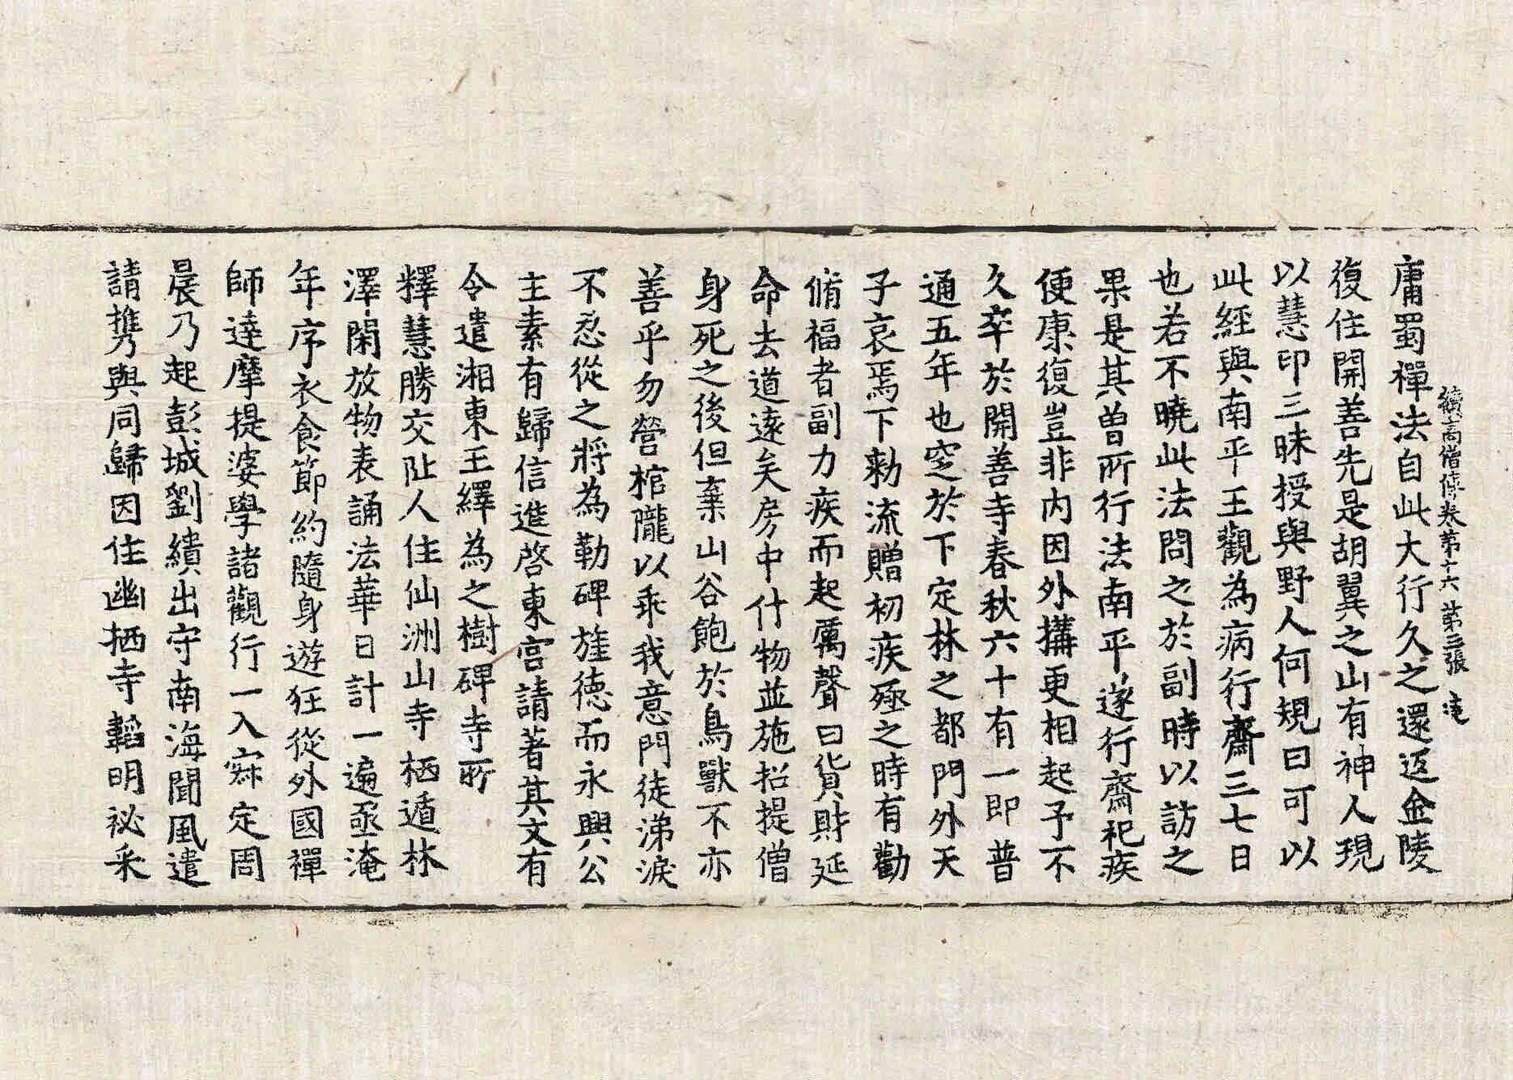 續高僧傳卷第十六 第三張
庸蜀禪法自此大行久之還返金陵
復住開善先是胡翼之山有神人現
以慧印三昧授與野人何規曰可以
此經與南平王觀為病行齋三七日
也若不曉此法問之於副時以訪之
果是其曾所行法南平遂行齋祀疾
便康復豈非內因外搆更相起予不
久卒於開善寺春秋六十有一即普
通五年也窆於下定林之都門外天
子哀焉下勑流贈初疾殛之時有勸
脩福者副力疾而起厲聲曰貨財延
命去道遠矣房中什物並施招提僧
身死之後但棄山谷飽於鳥獸不亦
善乎勿營棺隴以乖我意門徒涕淚
不忍從之將為勒碑旌德而永興公
主素有歸信進啓東宮請著其文有
令遣湘東王繹為之樹碑寺所
釋慧勝交阯人住仙洲山寺栖遁林
澤閑放物表誦法華日計一遍亟淹
年序衣食節約隨身遊狂從外國禪
師達摩提婆學諸觀行一入寂定周
晨乃起彭城劉繢出守南海聞風遣
請携與同歸因住幽栖寺韜明祕采